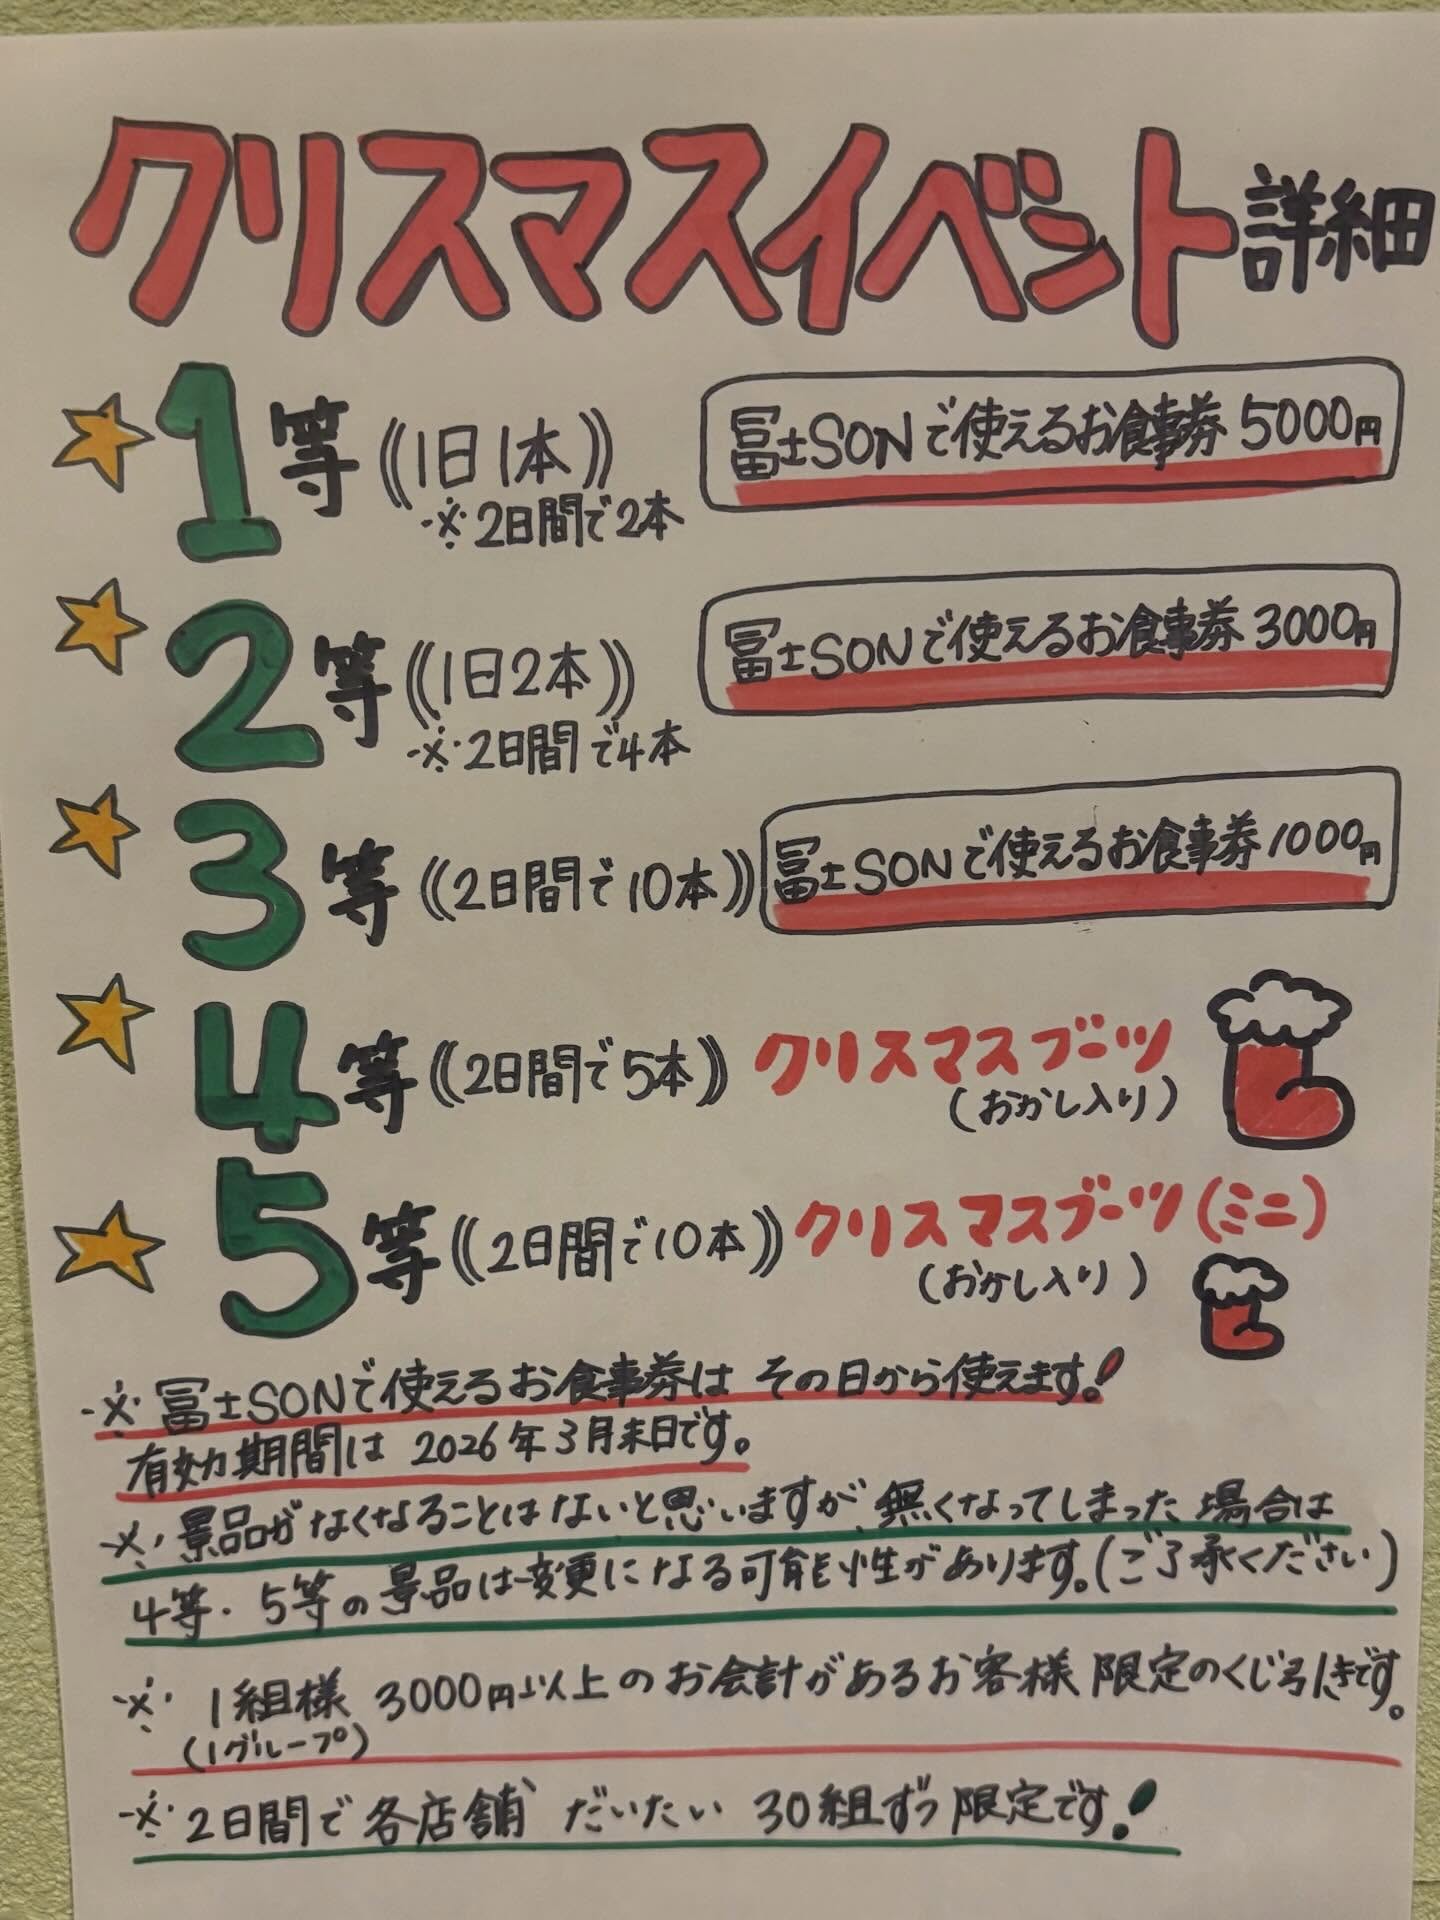 クリスマスイベント詳細
1等((1日1本)) 冨士SONで使えるお食事券5000円
※2日間で2本
2等((1日2本)) 冨士SONで使えるお食事券3000円
※2日間で4本
3等((2日間で10本)) 冨士SONで使えるお食事券1000円
4等((2日間で5本)) クリスマスブーツ
(おかし入り)
5等((2日間で10本)) クリスマスブーツ(ミニ)
(おかし入り)
※冨士SONで使えるお食事券は その日から使えます!
有効期間は 2026年3月末日です。
※景品がなくなることはないと思いますが、無くなってしまった場合は
4等・5等の景品は変更になる可能性があります。(ご了承ください)
※ 1組様 3000円以上のお会計があるお客様 限定のくじ引きです。
(1グループ)
※2日間で各店舗 だいたい 30組ずつ限定です!